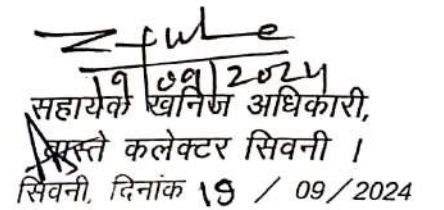 19/09/2024
सहायक खनिज अधिकारी,
वास्ते कलेक्टर सिवनी ।
सिवनी, दिनांक 19 / 09 / 2024